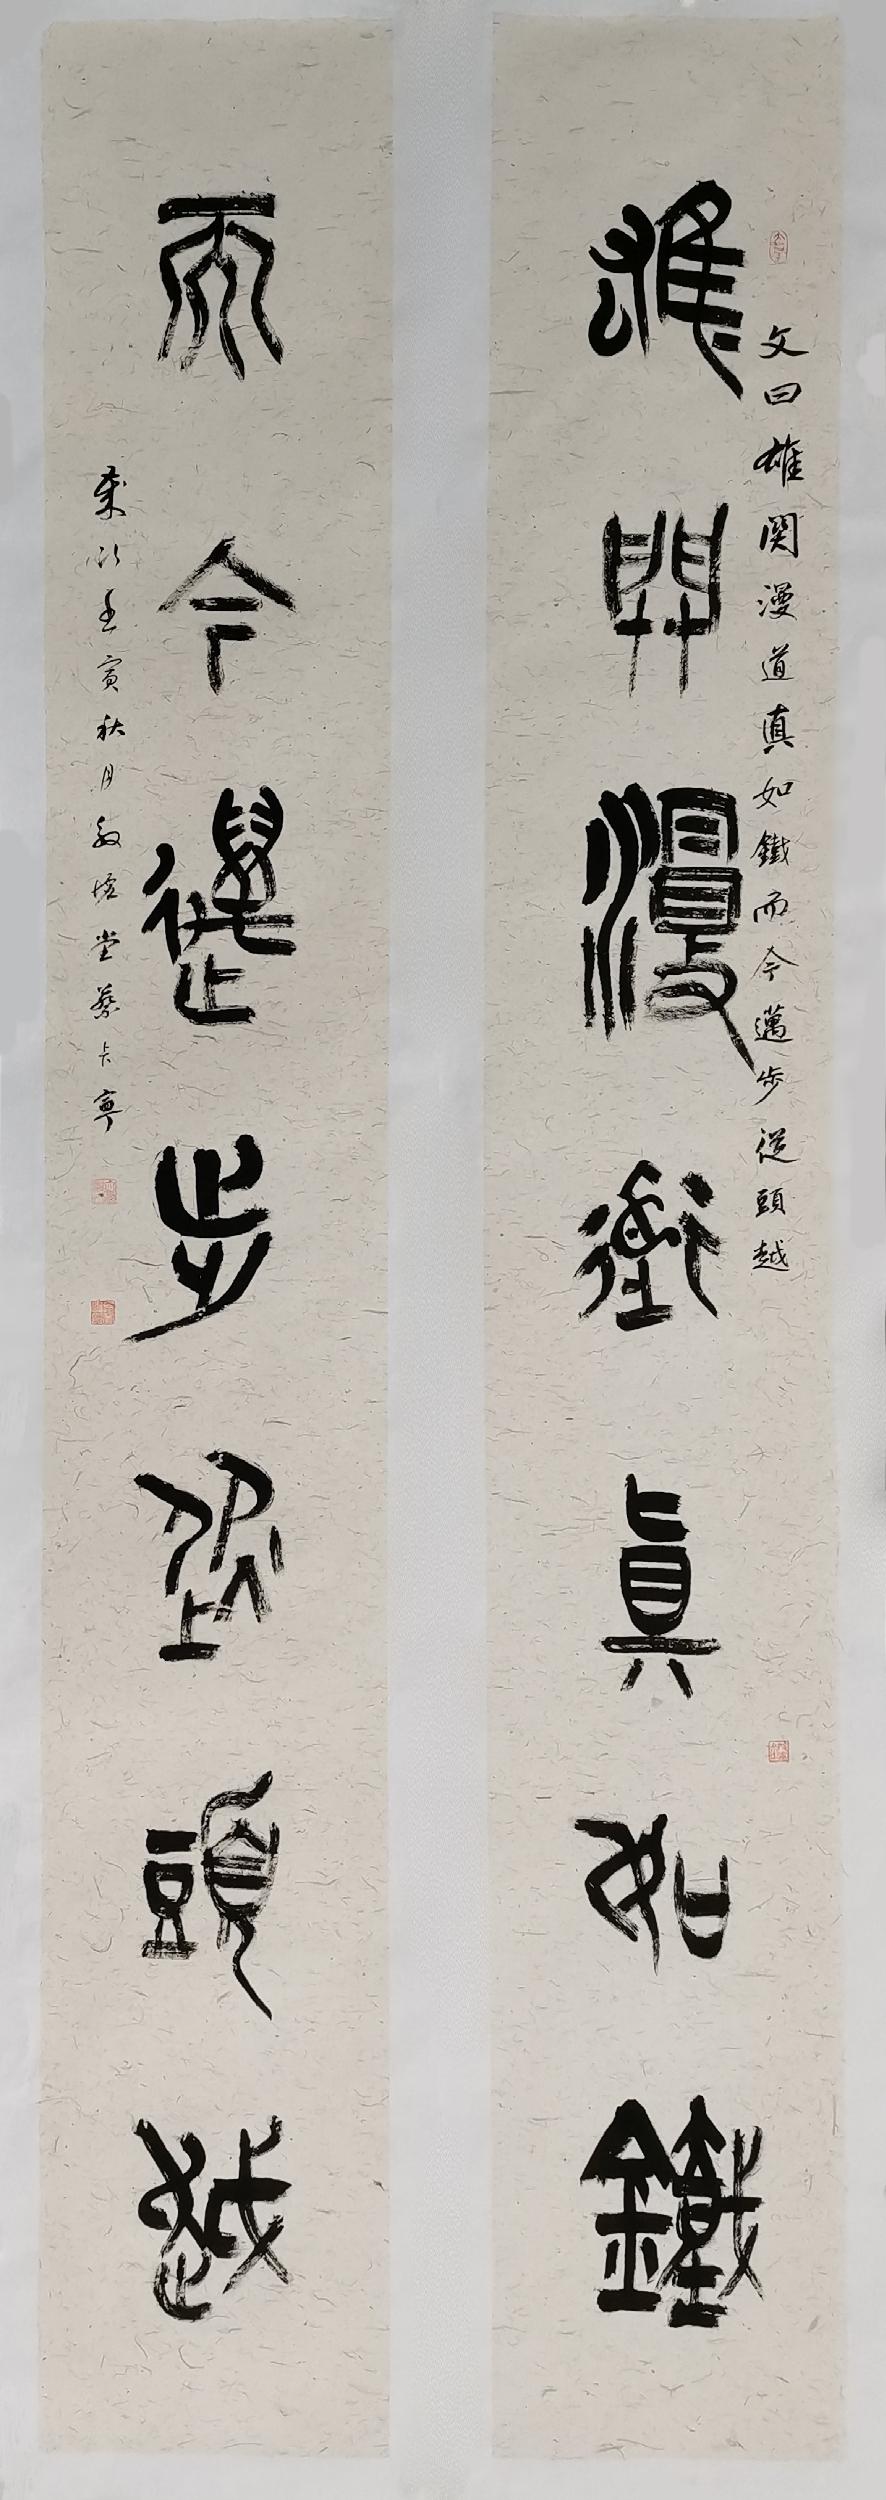 雄關漫道真如鐵
文曰雄関漫道真如鐵而今邁步從頭越
而今邁步從頭越
歲次壬寅秋月敬惜堂蔡長寧